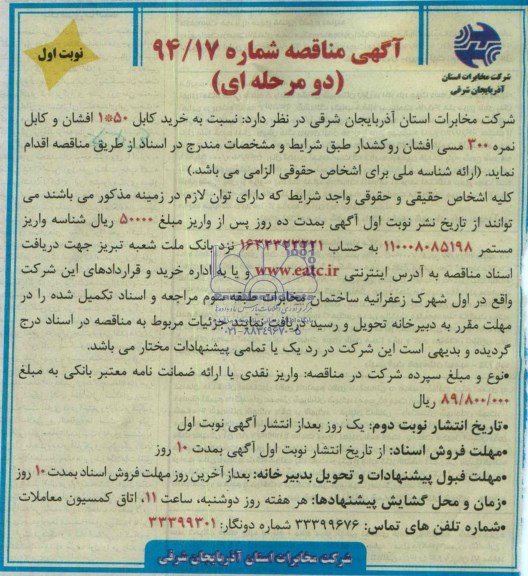 آگهی مناقصه شماره ۹۴/۱۷
(دو مرحله ای)
نوبت اول
شرکت مخابرات استان
آذربایجان شرقی
شرکت مخابرات استان آذربایجان شرقی در نظر دارد: نسبت به خرید کابل ۵۰*۱ افشان و کابل
نمره ۳۰۰ مسی افشان روکشدار طبق شرایط و مشخصات مندرج در اسناد از طریق مناقصه اقدام
نماید. (ارائه شناسه ملی برای اشخاص حقوقی الزامی می باشد.)
کلیه اشخاص حقیقی و حقوقی واجد شرایط که دارای توان لازم در زمینه مذکور می باشند می
توانند از تاریخ نشر نوبت اول آگهی بمدت ده روز پس از واریز مبلغ ۵۰۰۰۰ ریال شناسه واریز
مستمر ۱۱۰۰۰۸۰۸۵۱۹۸ به حساب نزد بانک ملت شعبه تبریز جهت دریافت
اسناد مناقصه به آدرس اینترنتی www.eatc.ir و یا به اداره خرید و قراردادهای این شرکت
واقع در اول شهرک زعفرانیه ساختمان مخابرات طبقه سوم مراجعه و اسناد تکمیل شده را در
مهلت مقرر به دبیرخانه تحویل و رسید دریافت نمایند جزئیات مربوط به مناقصه در اسناد درج
گردیده و بدیهی است این شرکت در رد یک یا تمامی پیشنهادات مختار می باشد.
•نوع و مبلغ سپرده شرکت در مناقصه: واریز نقدی یا ارائه ضمانت نامه معتبر بانکی به مبلغ
۸۹/۸۰۰/۰۰۰ ریال
•تاریخ انتشار نوبت دوم: یک روز بعداز انتشار آگهی نوبت اول
•مهلت فروش اسناد: از تاریخ انتشار نوبت اول آگهی بمدت ۱۰ روز
•مهلت قبول پیشنهادات و تحویل بدبیرخانه: بعداز آخرین روز مهلت فروش اسناد بمدت ۱۰ روز
•زمان و محل گشایش پیشنهادها: هر هفته روز دوشنبه، ساعت ۱۱، اتاق کمسیون معاملات
•شماره تلفن های تماس: ۳۳۳۹۹۶۷۶ شماره دورنگار: ۳۳۳۹۹۳۰۱
شرکت مخابرات استان آذربایجان شرقی